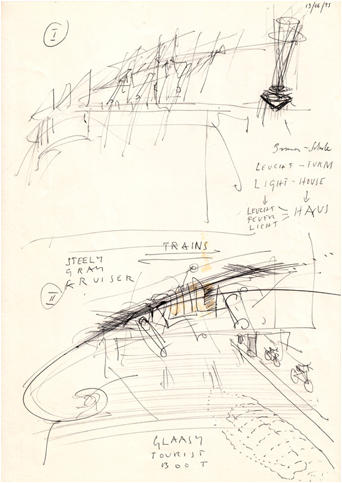 I
LEUCHT-TURM
LIGHT-HOUSE
LEUCHT
FEUER
LICHT
= HAUS
TRAINS
STEELY
GRAY
KRUISER
II
GLAASY
TOURIST
BOOT